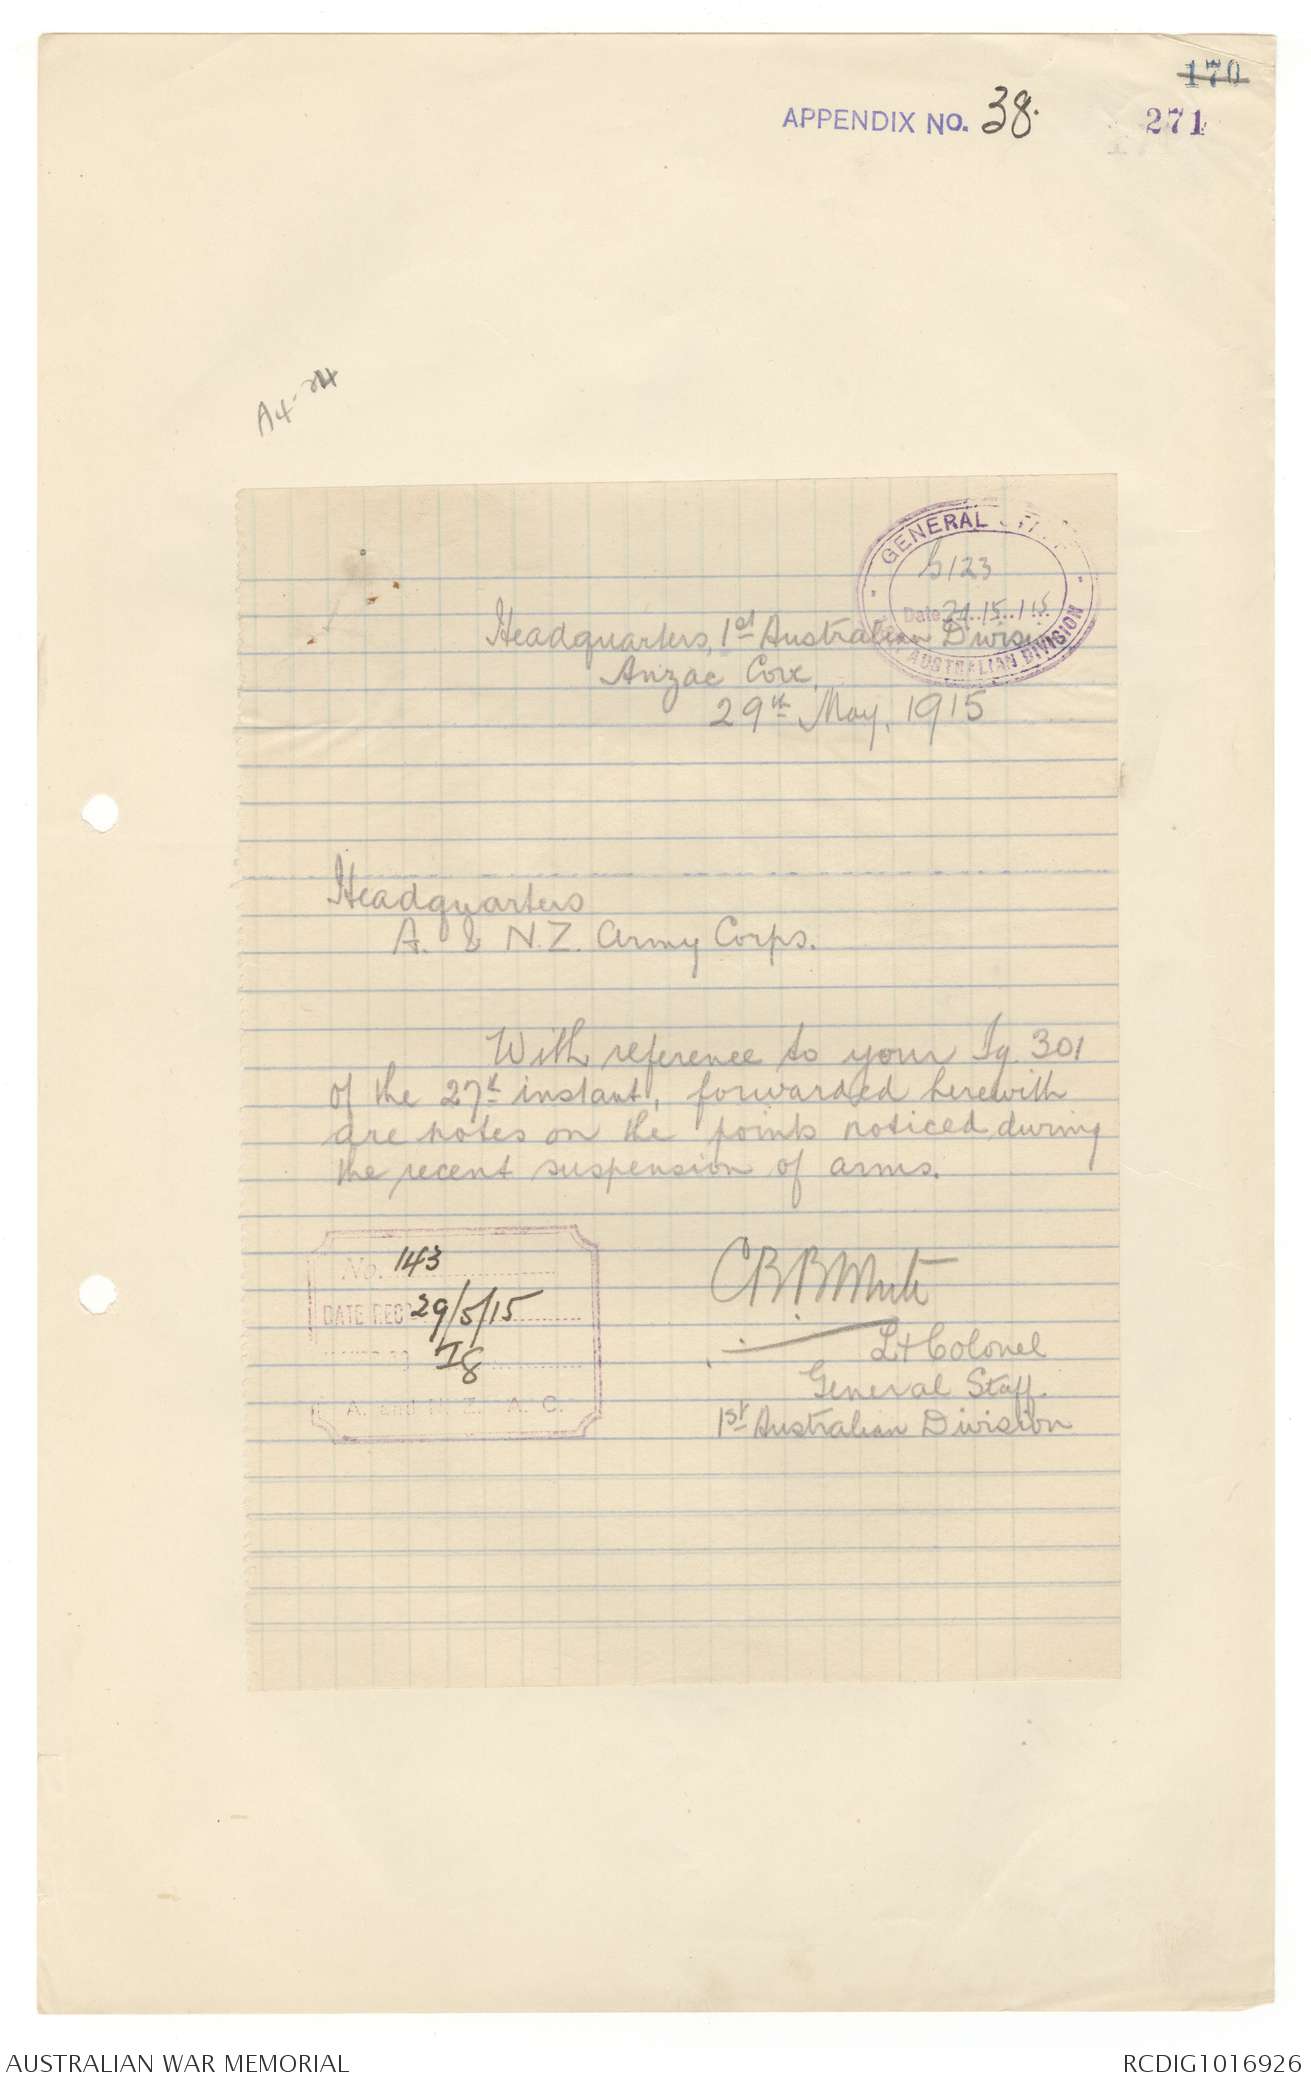 170
APPENDIX NO. 38.
271
A4-24
GENERAL STAFF
G123
Date 29/5/15
1ST AUSTRALIAN DIVISION
Headquarters, 1st Australian Division
Anzac Cove,
29th May, 1915
Headquarters
A. & N.Z. Army Corps.
With reference to your Ig. 301
of the 27th instant, forwarded herewith
are notes on the points noticed during
the recent suspension of arms.
No. 143
DATE RECD 29/5/15
I8
A. and N. Z. A. C.
CBBWhite
Lt Colonel
General Staff.
1st Australian Division
AUSTRALIAN WAR MEMORIAL
RCDIG1016926